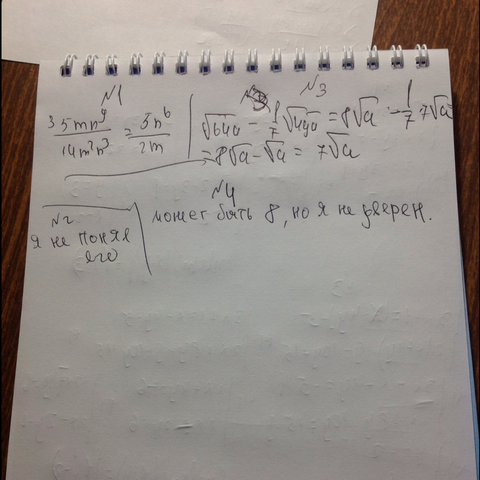 N1
35mn⁹/14m²n³ = 5n⁶/2m
N3
√64a - 1/7 √49a = 8√a - 1/7 · 7√a =
= 8√a - √a = 7√a
N2
я не понял
его
N4
может быть 8, но я не уверен.